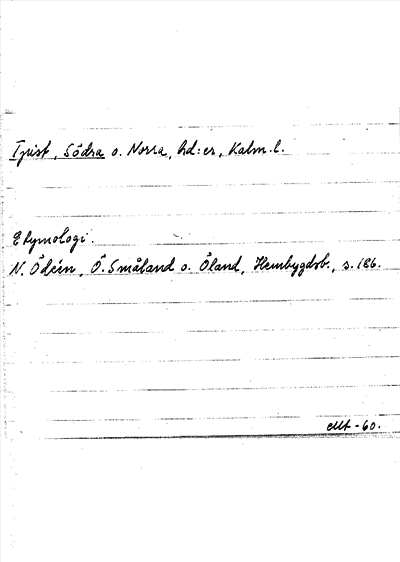 Tjust, Södra o. Norra, hd:er, Kalm. l.
Etymologi.
N. Ödéen, Ö. Småland o. Öland, Hembygdsb., s. 186.
EMt -60.